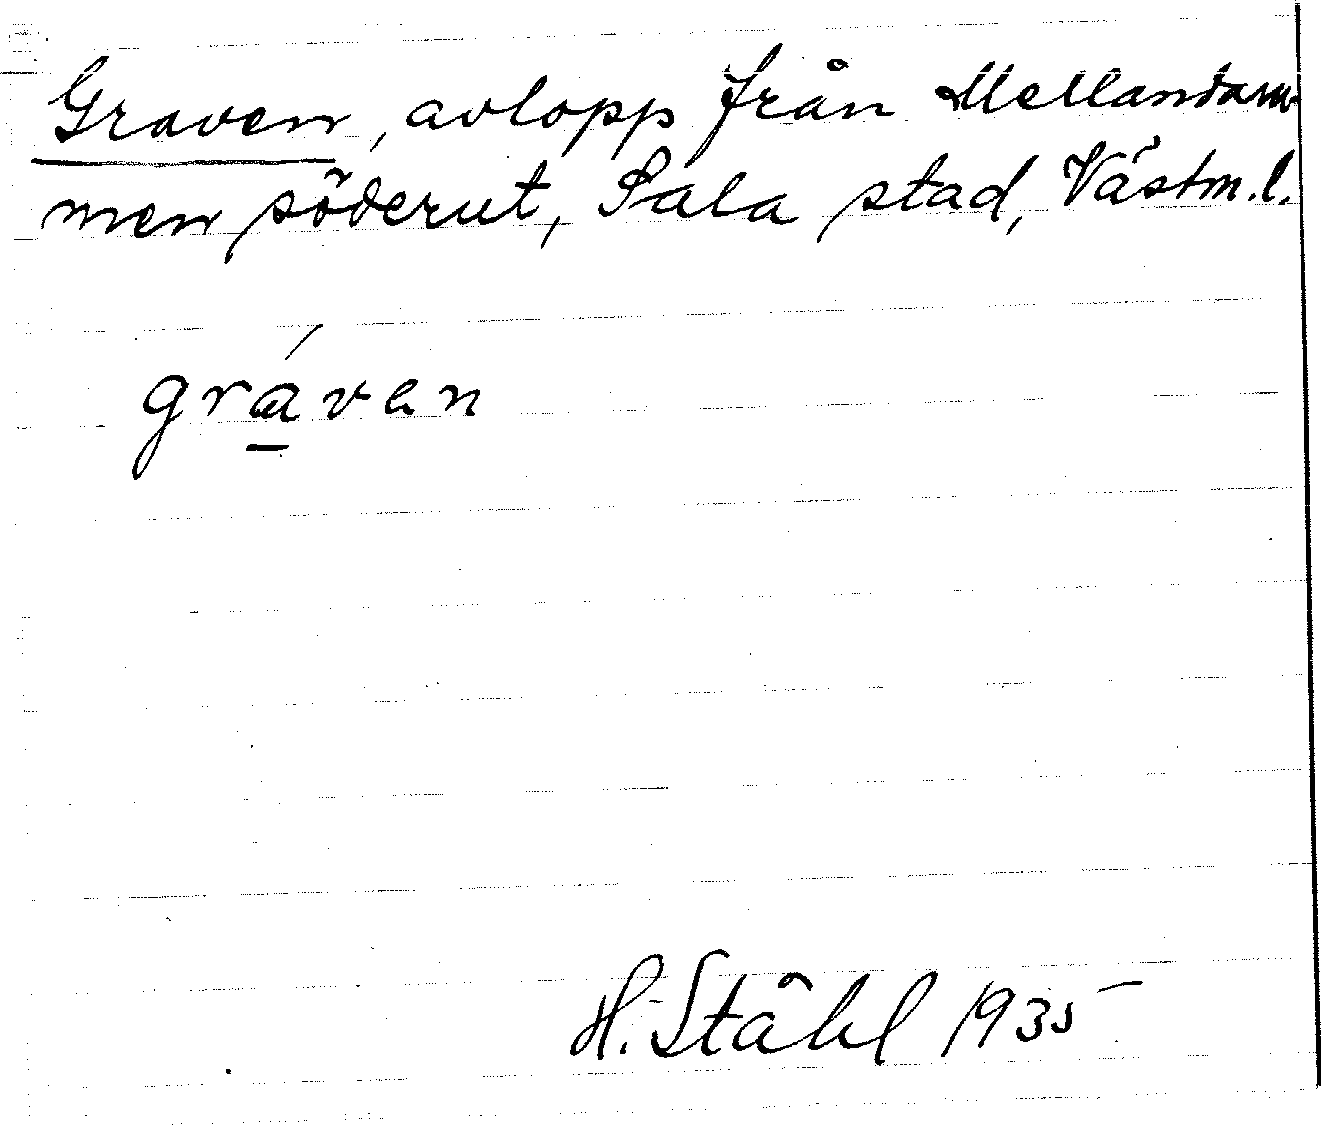 Graven, avlopp från Mellandam-
men söderut, Sala stad, Västm.l.
gráven
H. Ståhl 1935